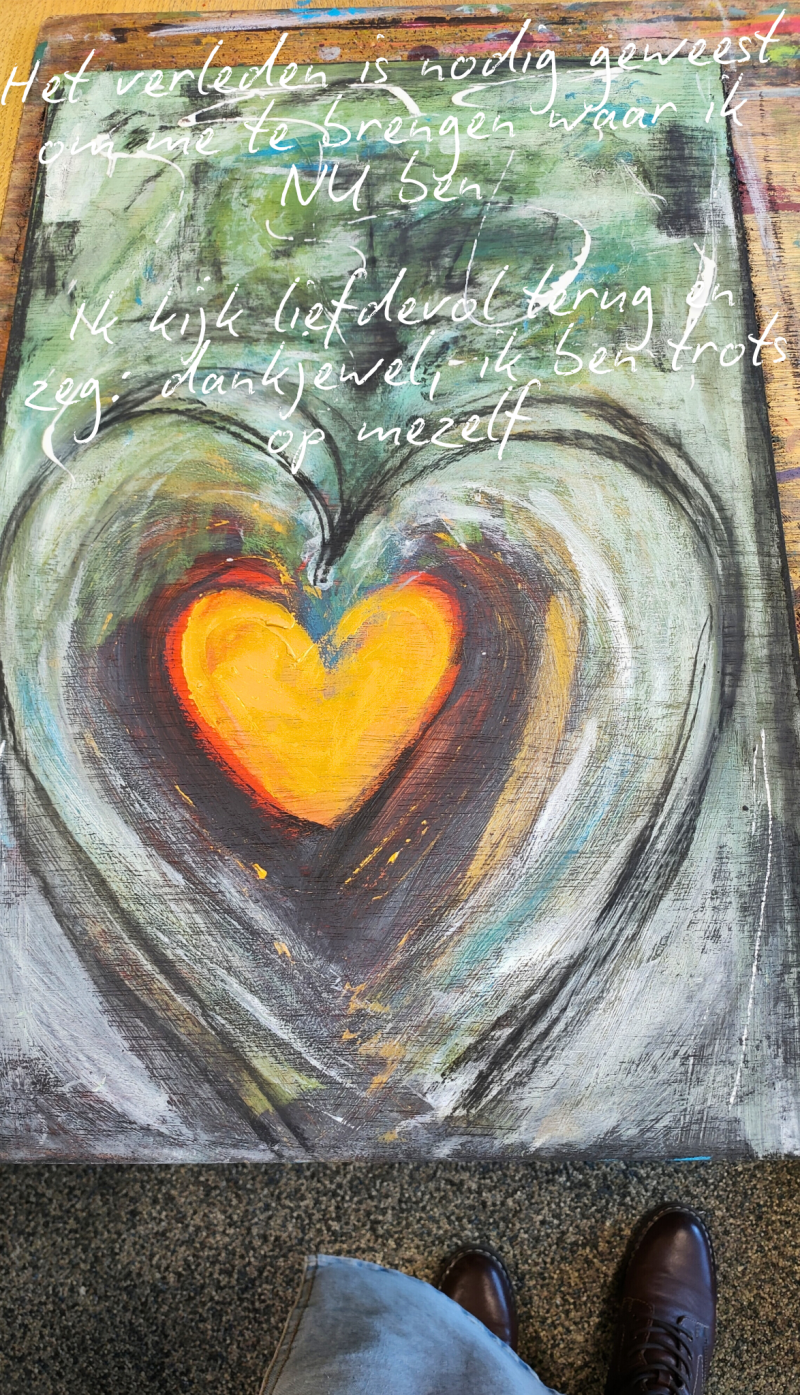 Het verleden is nodig geweest
om me te brengen waar ik
NU ben
Ik kijk liefdevol terug en
zeg: dankjewel,- ik ben trots
op mezelf